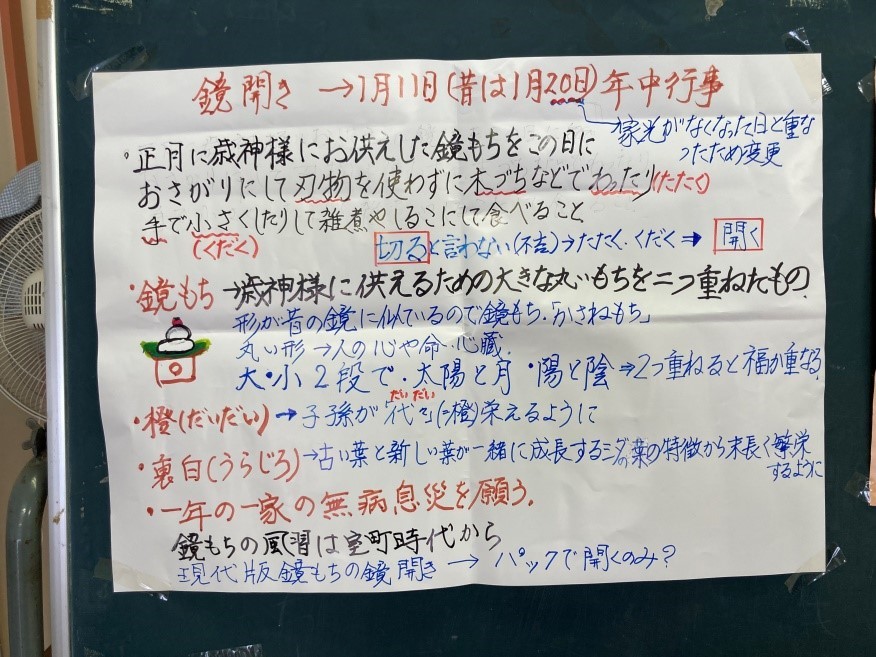 鏡開き →1月11日(昔は1月20日)年中行事
家光がなくなった日と重な
ったため変更
・正月に歳神様にお供えした鏡もちをこの日に
おさがりにして刃物を使わずに木づちなどでわったり(たたく)
手で小さくしたりして雑煮やしるこにして食べること
(くだく) 切ると言わない(不吉)→たたく・くだく⇒ 開く
・鏡もち→歳神様に供えるための大きな丸いもちを二つ重ねたもの
形が昔の鏡に似ているので鏡もち・「かさねもち」
丸い形→人の心や命・心臓
大・小2段で・太陽と月・陽と陰⇒2つ重ねると福が重なる
だいだい
・橙(だいだい)→子孫が「代々」(=橙)栄えるように
・裏白(うらじろ)→古い葉と新しい葉が一緒に成長するシダの葉の特徴から末長く繁栄
するように
・一年の一家の無病息災を願う.
鏡もちの風習は室町時代から
現代版鏡もちの鏡開き → パックで開くのみ?